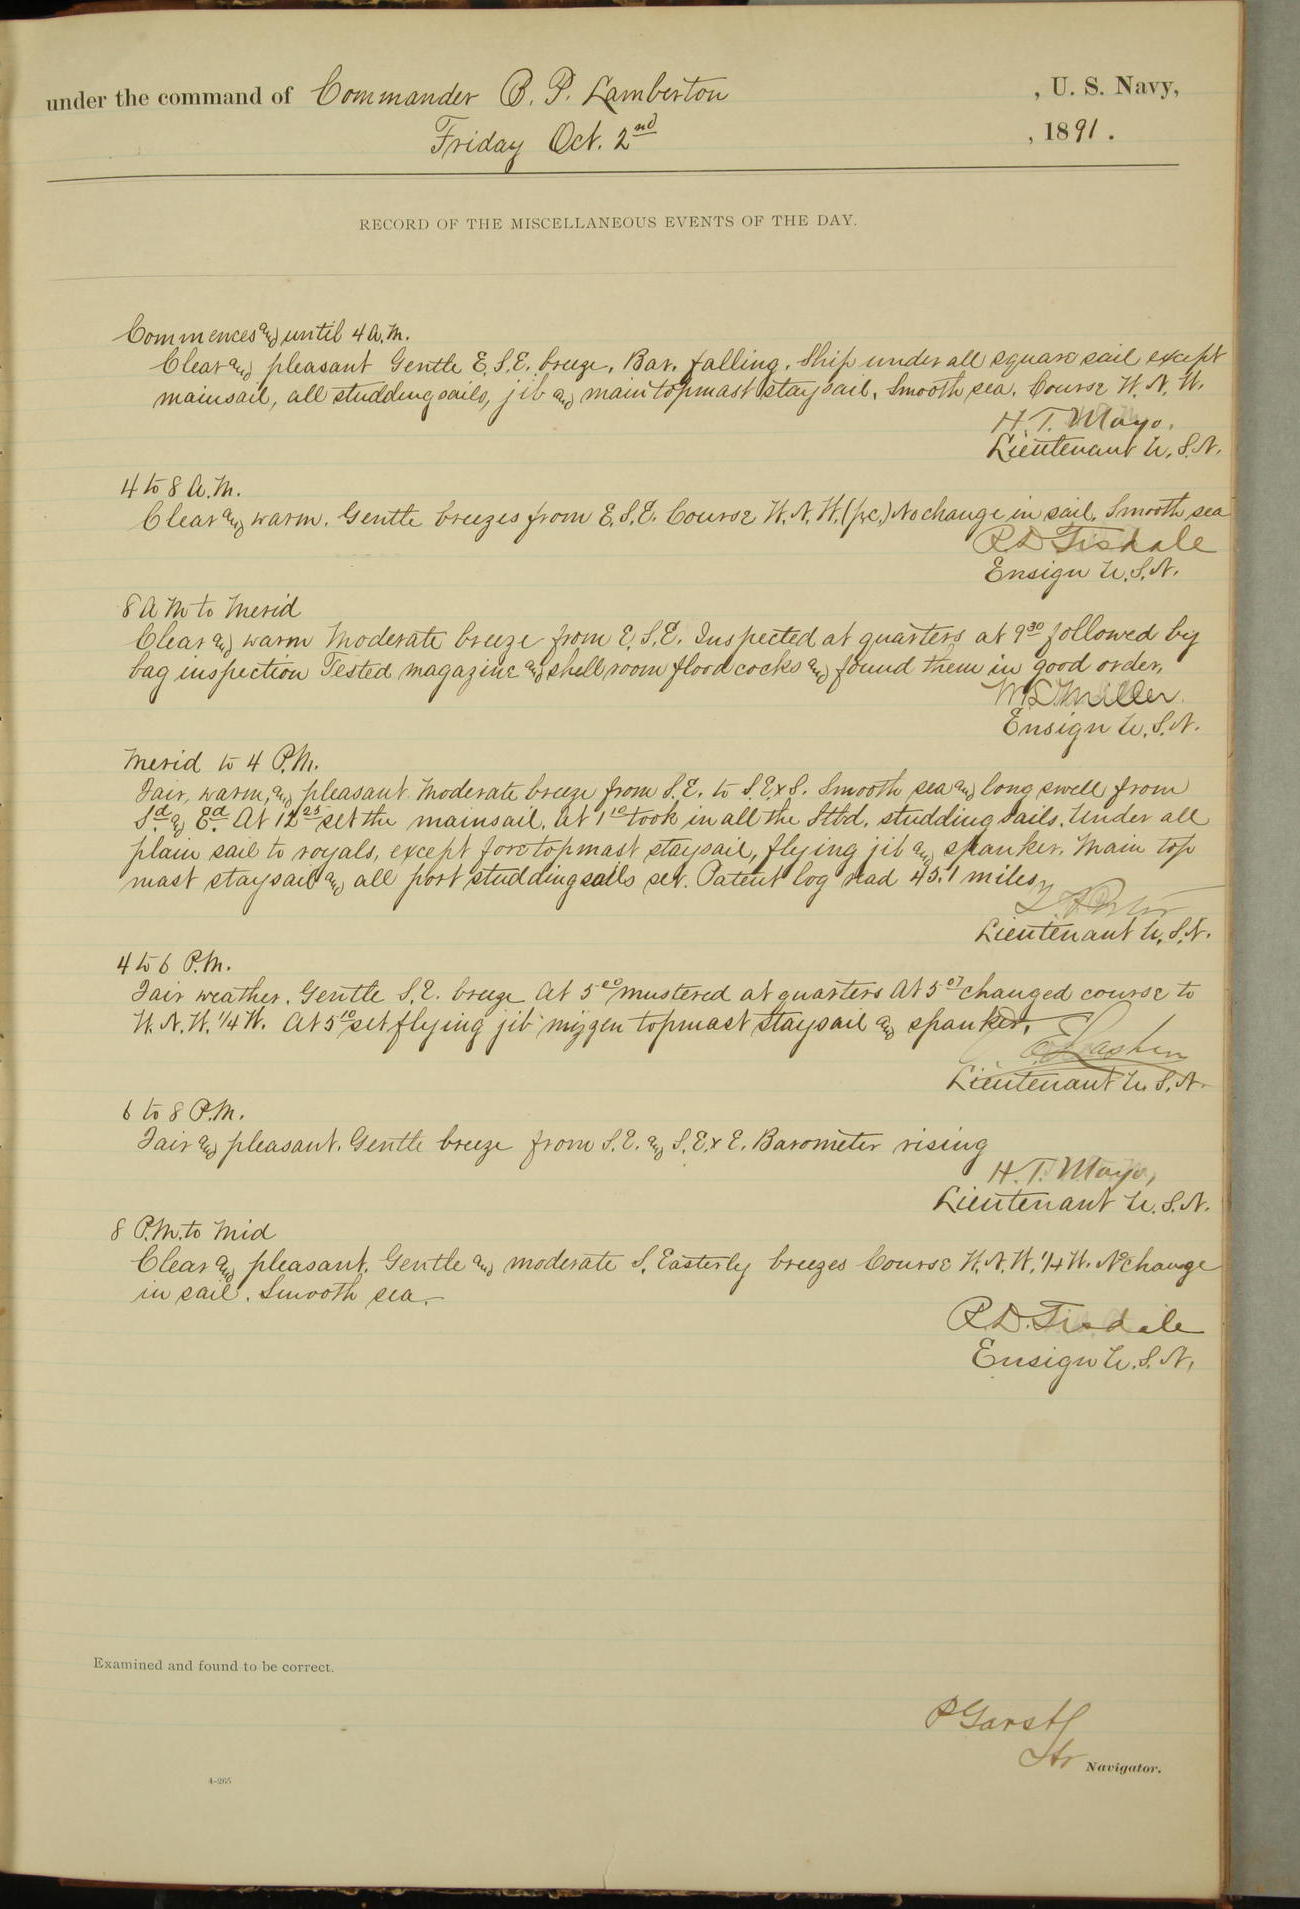 under the command of Commander B. P. Lamberton , U. S. Navy,
Friday Oct. 2nd , 1891.
RECORD OF THE MISCELLANEOUS EVENTS OF THE DAY.
Commences and until 4 A.M.
Clear and pleasant Gentle E.S.E. breeze. Bar. falling. Ship under all square sail except
mainsail, all studdingsails, jib and main topmast staysail. Smooth sea. Course W.N.W.
H. T. Mayo,
Lieutenant U.S.N.
4 to 8 A.M.
Clear and warm. Gentle breezes from E.S.E. Course W.N.W. (p.c.) No change in sail. Smooth sea
R D Tisdale
Ensign U.S.N.
8 A M to Merid
Clear and warm Moderate breeze from E.S.E. Inspected at quarters at 9 30 followed by
bag inspection Tested magazine and shell room flood cocks and found them in good order.
Ensign U.S.N.
Merid to 4 P.M.
Fair, warm, and pleasant. Moderate breeze from S.E. to S.E.xS. Smooth sea and long swell from
Sd. and Ed. At 12 25 set the mainsail. At 1 10 took in all the Stbd. studding sails. Under all
plain sail to royals, except fore topmast staysail, flying jib and spanker. Main top
mast staysail and all port studdingsails set. Patent log read 45.1 miles
Lieutenant U.S.N.
4 to 6 P.M.
Fair weather. Gentle S.E. breeze At 5 00 mustered at quarters At 5 07 changed course to
W.N.W. 1/4 W. At 5 10 set flying jib mizzen topmast staysail and spanker.
Lieutenant U.S.N.
6 to 8 P.M.
Fair and pleasant. Gentle breeze from S.E. and S.E.x E. Barometer rising
H. T. Mayo,
Lieutenant U.S.N.
8 P.M. to Mid
Clear and pleasant. Gentle and moderate S. Easterly breezes Course W.N.W. 1/4 W. No change
in sail. Smooth sea.
R.D. Tisdale
Ensign U.S.N.
Examined and found to be correct.
P Garst
Navigator.
4-265